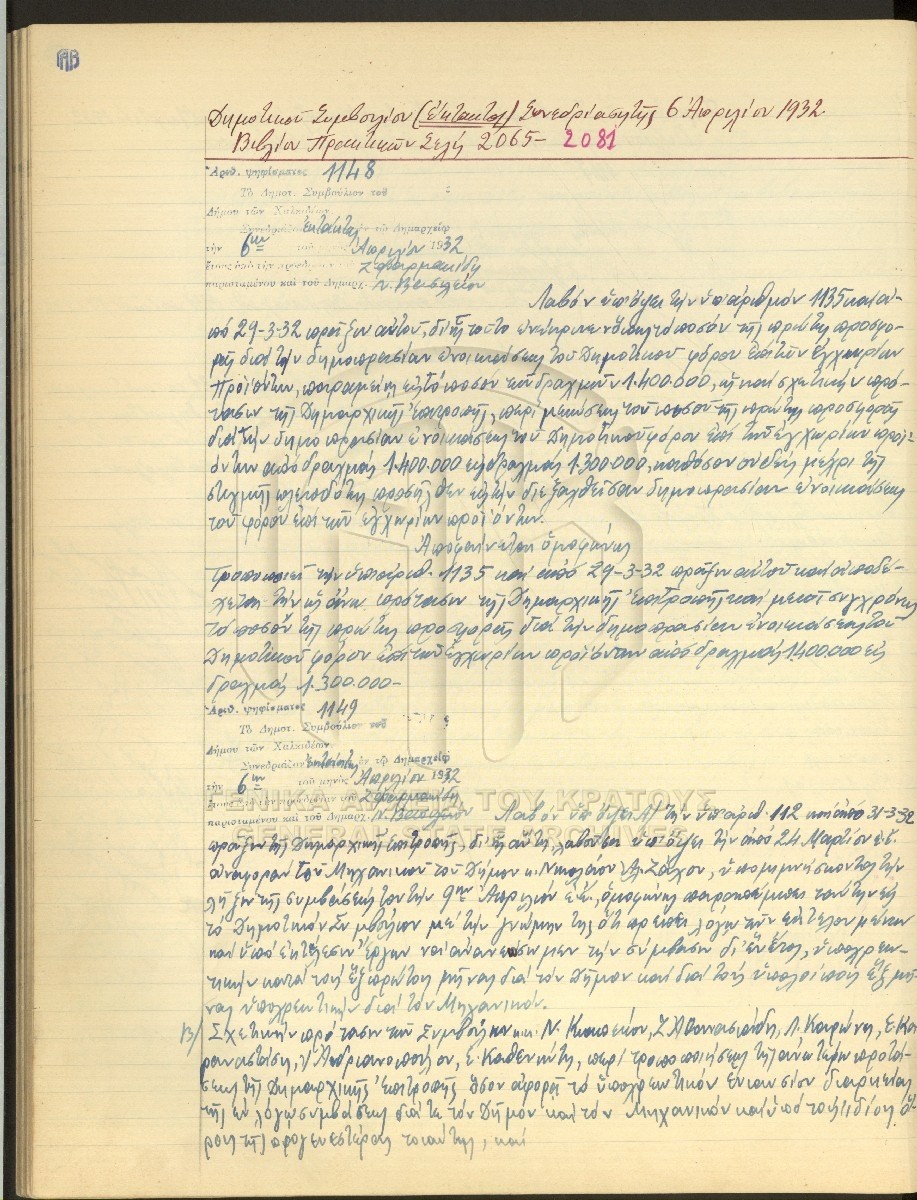 Δημοτικοῦ Συμβουλίου (ἔκτακτος) Συνεδρίασις τῆς 6 Ἀπριλίου 1932
Βιβλίον Πρακτικῶν Σελὶς 2065- 2081
Ἀριθ. ψηφίσματος 1148
Τὸ Δημοτ. Συμβούλιον τοῦ
Δήμου τῶν Χαλκιδέων
Συνεδριάζον ἐκτάκτως ἐν τῷ Δημαρχείῳ
τὴν 6ην τοῦ μηνὸς Ἀπριλίου 1932
ἔτους ὑπὸ τὴν προεδρίαν
παρισταμένου καὶ τοῦ Δημάρχ. Ν. Βασιλείου
Λαβὸν ὑπ' ὄψει τὴν ὑπ' ἀριθμὸν 1135 καὶ ἀ-
πὸ 29-3-32 πρᾶξιν αὐτοῦ, δι' ἧς τοῦτο ἐνέκρινεν ὅπως τὸ ποσὸν τῆς πρώτης προσφο-
ρᾶς διὰ τὴν δημοπρασίαν ἐνοικιάσεως τοῦ Δημοτικοῦ φόρου ἐπὶ τῶν ἐγχωρίων
προϊόντων, παραμείνῃ εἰς τὸ ποσὸν τῶν δραχμῶν 1.400.000, ὡς καὶ σχετικὴν πρό-
τασιν τῆς Δημαρχικῆς Ἐπιτροπῆς, περὶ μειώσεως τοῦ ποσοῦ τῆς πρώτης προσφορᾶς
διὰ τὴν δημοπρασίαν ἐνοικιάσεως τοῦ Δημοτικοῦ φόρου ἐπὶ τῶν ἐγχωρίων προϊ-
όντων ἀπὸ δραχμὰς 1.400.000 εἰς δραχμὰς 1.300.000, καθόσον οὐδεὶς μέχρι τῆς
στιγμῆς πλειοδότης προσῆλθεν εἰς τὴν διεξαχθεῖσαν δημοπρασίαν ἐνοικιάσεως
τοῦ φόρου ἐπὶ τῶν ἐγχωρίων προϊόντων.
Ἀποφαίνεται ὁμοφώνως
Τροποποιεῖ τὴν ὑπ' ἀριθ. 1135 καὶ ἀπὸ 29-3-32 πρᾶξιν αὐτοῦ καὶ ἀποδέ-
χεται τὴν ὡς ἄνω πρότασιν τῆς Δημαρχικῆς Ἐπιτροπῆς καὶ μειοῖ συγχρόνως
τὸ ποσὸν τῆς πρώτης προσφορᾶς διὰ τὴν δημοπρασίαν ἐνοικιάσεως τοῦ
Δημοτικοῦ φόρου ἐπὶ τῶν ἐγχωρίων προϊόντων ἀπὸ δραχμὰς 1.400.000 εἰς
δραχμὰς 1.300.000-
Ἀριθ. ψηφίσματος 1149
Τὸ Δημοτ. Συμβούλιον τοῦ
Δήμου τῶν Χαλκιδέων
Συνεδριάζον ἐκτάκτως ἐν τῷ Δημαρχείῳ
τὴν 6ην τοῦ μηνὸς Ἀπριλίου 1932
ἔτους ὑπὸ τὴν προεδρίαν τοῦ
παρισταμένου καὶ τοῦ Δημάρχ. Ν. Βασιλείου
ΓΕΝΙΚΑ ΑΡΧΕΙΑ ΤΟΥ ΚΡΑΤΟΥΣ
GENERAL STATE ARCHIVES
Λαβὸν ὑπ' ὄψει Α) τὴν ὑπ' ἀριθ. 112 καὶ ἀπὸ 31-3-32
πρᾶξιν τῆς Δημαρχικῆς Ἐπιτροπῆς, δι' ἧς αὕτη, λαβοῦσα ὑπ' ὄψει τὴν ἀπὸ 24 Μαρτίου ἐ.ἔ.
ἀναφορὰν τοῦ Μηχανικοῦ τοῦ Δήμου κ. Νικολάου Ζάχου, ὑπομιμνήσκοντος τὴν
λῆξιν τῆς συμβάσεώς του τὴν 9ην Ἀπριλίου ἐ.ἔ., ὁμοφώνως παραπέμπει ταύτην εἰς
τὸ Δημοτικὸν Συμβούλιον μὲ τὴν γνώμην της ὅτι πρέπει λόγῳ τῶν ἐκτελουμένων
καὶ ὑπὸ ἐκτέλεσιν ἔργων νὰ ἀνανεώσωμεν τὴν σύμβασιν δι' ἓν ἔτος, ὑποχρεω-
τικὴν κατὰ τοὺς ἓξ πρώτους μῆνας διὰ τὸν Δῆμον καὶ διὰ τοὺς ὑπολοίπους ἓξ μῆ-
νας ὑποχρεωτικὴν διὰ τὸν Μηχανικόν.
Β) Σχετικὴν πρότασιν τῶν Συμβούλων κ.κ. Ν. Ζ. Ἀθανασιάδη, Λ. Καρώνη, Ε. Κα-
ραναστάση, Ἀνδριανοπούλου, Ε. Καθενιώτη, περὶ τροποποιήσεως τῆς ἀνωτέρω προτά-
σεως τῆς Δημαρχικῆς Ἐπιτροπῆς ὅσον ἀφορᾷ τὸ ὑποχρεωτικὸν ἐνιαυσίου διαρκείας
τῆς ἐν λόγῳ συμβάσεως διά τε τὸν Δῆμον καὶ τὸν Μηχανικὸν καὶ ὑπὸ τοὺς ἰδίους ὅ-
ρους τῆς προγενεστέρας τοιαύτης, καὶ